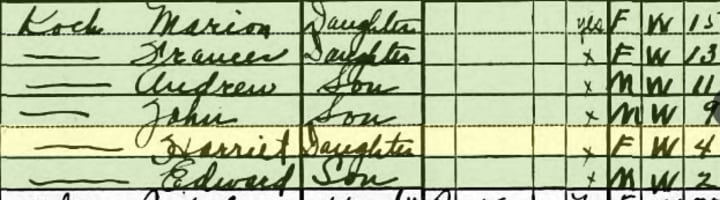 Koch Marion Daughter yes F W 15
— Frances Daughter x F W 13
— Andrew Son x M W 11
— John Son x M W 9
— Harriet Daughter x F W 4
— Edward Son x M W 2